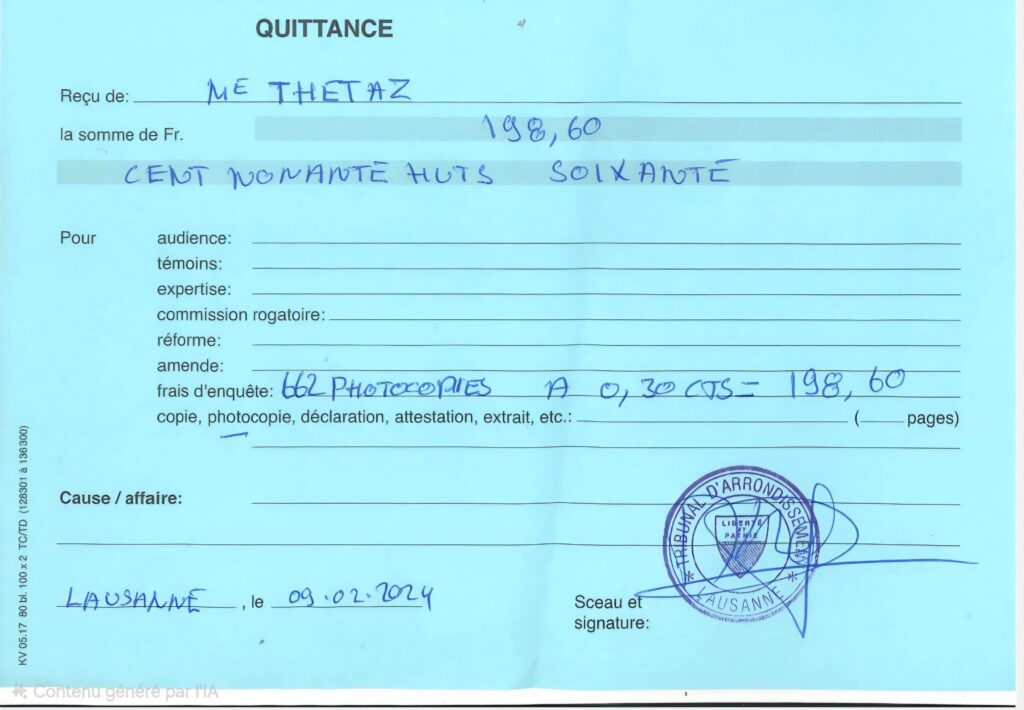 QUITTANCE
Reçu de: ME THETAZ
la somme de Fr. 198,60
CENT NONANTE HUTS SOIXANTE
Pour audience:
témoins:
expertise:
commission rogatoire:
réforme:
amende:
frais d'enquête: 662 PHOTOCOPIES A 0,30 CTS = 198,60
copie, photocopie, déclaration, attestation, extrait, etc.: ( pages)
Cause / affaire:
LAUSANNE, le 09.02.2024
Sceau et
signature:
TRIBUNAL D'ARRONDISSEMENT
LIBERTÉ
ET
PATRIE
* LAUSANNE *
KV 05.17 80 bl. 100 x 2 TC/TD (128301 à 136300)
Contenu généré par l'IA